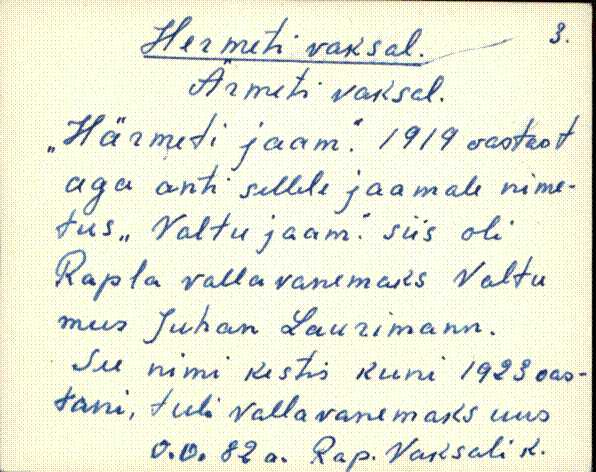 Hermeti vaksal. 3.
Ärmeti vaksal.
„Härmeti jaam". 1919 aastast
aga anti sellele jaamale nime-
tus „Valtu jaam". siis oli
Rapla vallavanemaks Valtu
mees Juhan Laurimann.
See nimi kestis kuni 1923 aas-
tani, tuli vallavanemaks uus
v.v. 82 a. Rap. Vaksali k.